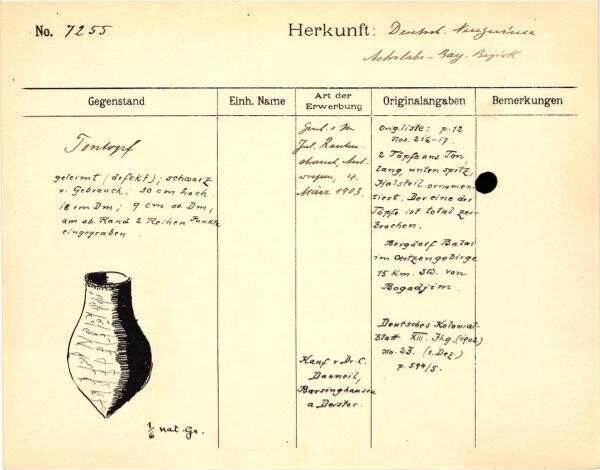 No. 7255
Herkunft: Deutsch. Neuguinea
Astrolabe-Bay-Bezirk
Gegenstand
Einh. Name
Art der
Erwerbung
Originalangaben
Bemerkungen
Tontopf
geleimt (defekt); schwarz
v. Gebrauch; 30 cm hoch
18 cm Dm; 9 cm ob. Dm,
am ob. Rand 2 Reihen Punkte
eingegraben.
1/6 nat. Gr.
Jul. Rauten-
4.
März 1903.
Kauf v. Dr. C.
Barsinghausen
a Deister.
Orig. liste: p. 12
Nos. 216-17.
2 Töpfe aus Ton,
lang, unten spitz,
Halsteil ornamen-
tiert. Der eine der
Töpfe ist total zer-
brochen.
Bergdorf Balai
im Oertzengebirge
15 km. SW. von
Bogadjim.
Deutsches Kolonial-
blatt XIII. Jhg. (1902)
No. 23. (1. Dez.)
p. 594/5.